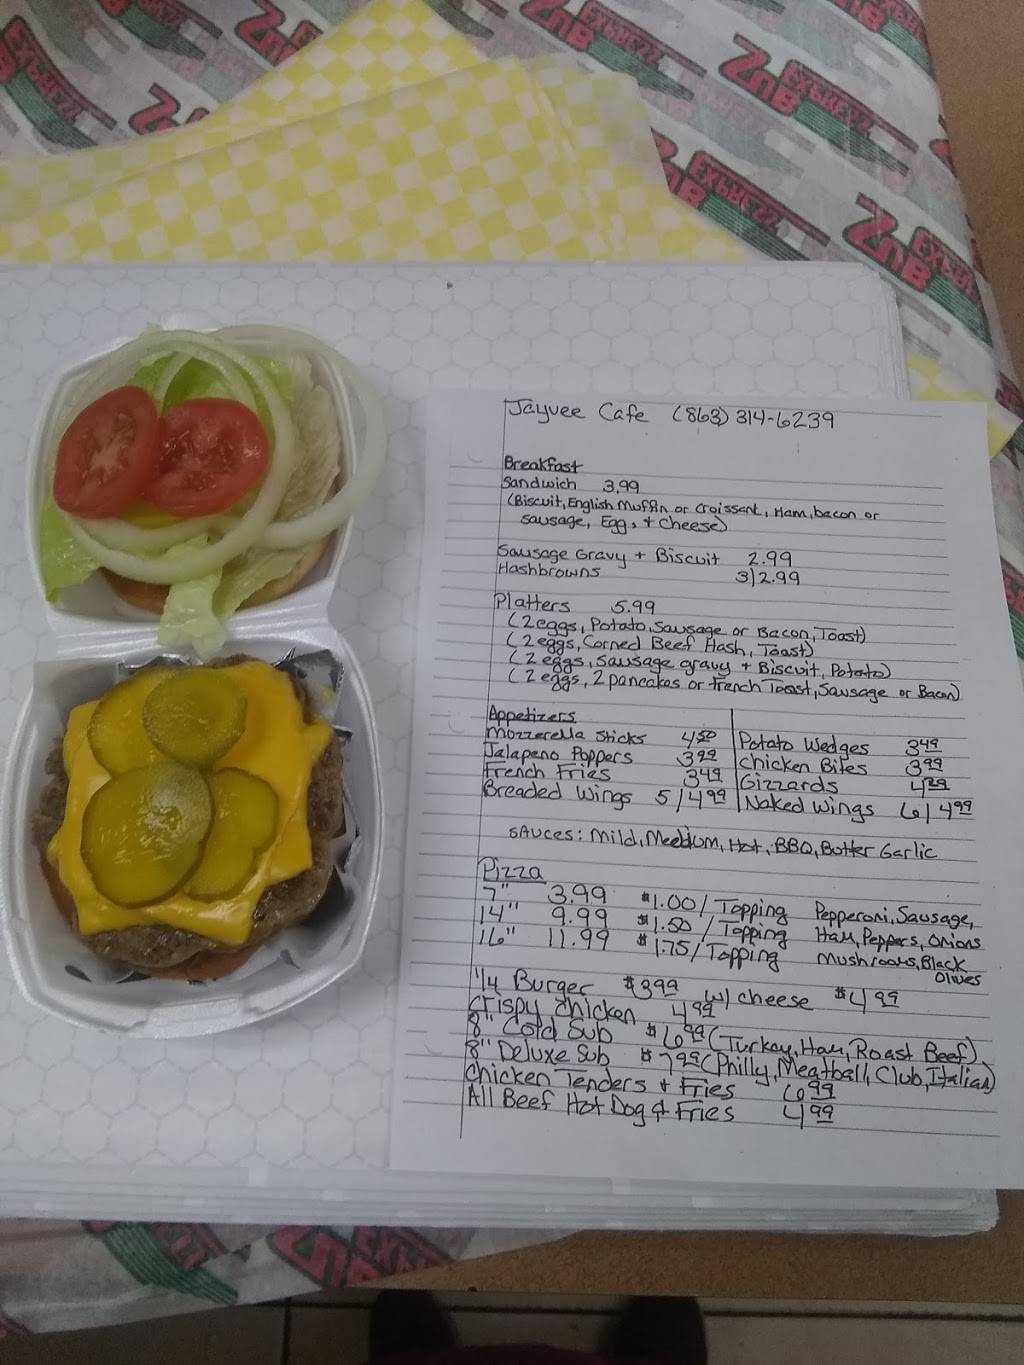 Jayvee Cafe (863) 314-6239
Breakfast
Sandwich 3.99
(Biscuit, English Muffin or Croissant, Ham, bacon or
sausage, Egg, + Cheese)
Sausage Gravy + Biscuit 2.99
Hashbrowns 3/2.99
Platters 5.99
(2 eggs, Potato, Sausage or Bacon, Toast)
(2 eggs, Corned Beef Hash, Toast)
(2 eggs, Sausage gravy + Biscuit, Potato)
(2 eggs, 2 pancakes or French Toast, Sausage or Bacon)
Appetizers
Mozzerella Sticks 4.50
Jalapeno Poppers 3.99
French Fries 3.49
Breaded Wings 5/4.99
Potato Wedges 3.49
Chicken Bites 3.99
Gizzards
Naked Wings 6/4.99
SAUCES: Mild, Medium, Hot, BBQ, Butter Garlic
Pizza
7" 3.99 $1.00/Topping Pepperoni, Sausage,
14" 9.99 $1.50/Topping Ham, Peppers, Onions
16" 11.99 $1.75/Topping Mushrooms, Black
Olives
1/4 Burger $3.99 w/ cheese $4.99
Crispy Chicken 4.99
8" Cold Sub $6.99 (Turkey, Ham, Roast Beef)
8" Deluxe Sub $7.99 (Philly, Meatball, Club, Italian)
Chicken Tenders + Fries 6.99
All Beef Hot Dog & Fries 4.99